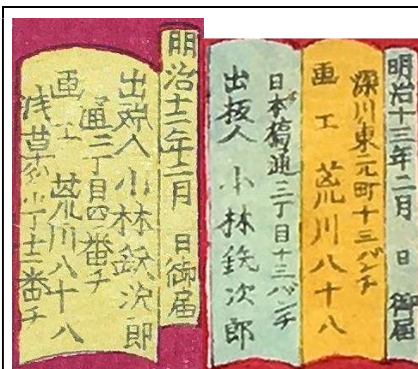 明治十三年二月 日 御届
深川東元町十三バンチ
画工 荒川八十八
日本橋通三丁目十三バンチ
出板人 小林銕次郎
明治十二年二月 日御届
出板人 小林銕次郎
通三丁目四番チ
画工 荒川八十八
浅草 丁十二番チ